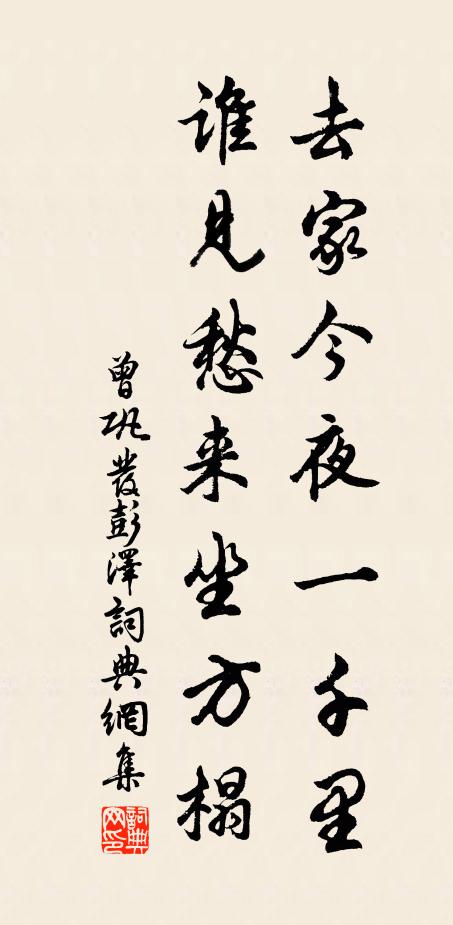 去家今夜一千里
谁见愁来坐方榻
曾巩發彭澤詞典網集
詞典网印